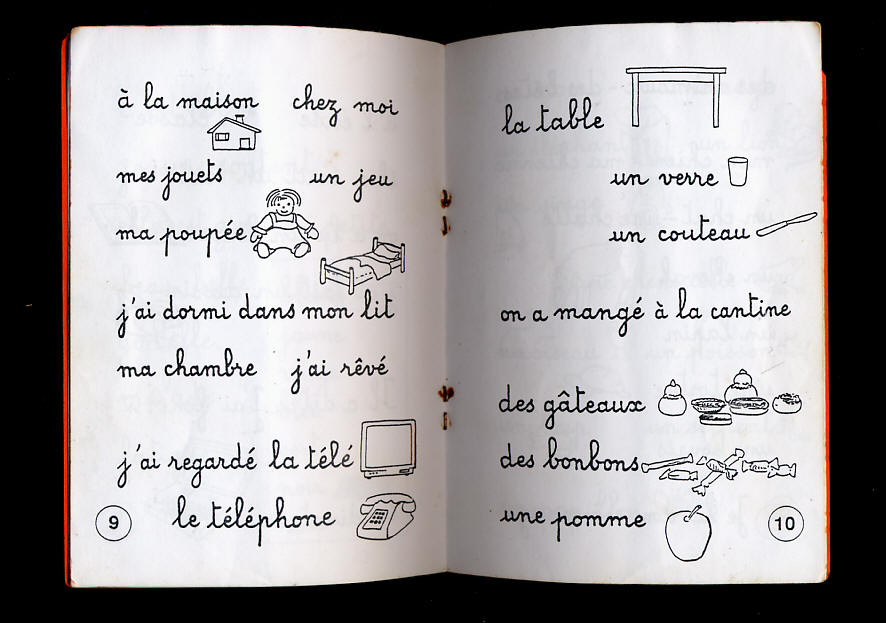 à la maison chez moi
mes jouets un jeu
ma poupée
j'ai dormi dans mon lit
ma chambre j'ai rêvé
j'ai regardé la télé
le téléphone
9
la table
un verre
un couteau
on a mangé à la cantine
des gâteaux
des bonbons
une pomme
10